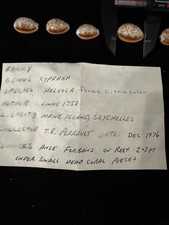 FAMILY
GENUS CYPRAEA
SPECIES HELVOLA Forma
AUTHOR LINNE 1758
LOCALITY MAHE ISLAND, SEYCHELLES
COLLECTOR T.R. PERRAULT DATE: DEC 1976
REMARKS ANSE FORBANS ON REEF
UNDER SMALL DEAD CORAL PIECES